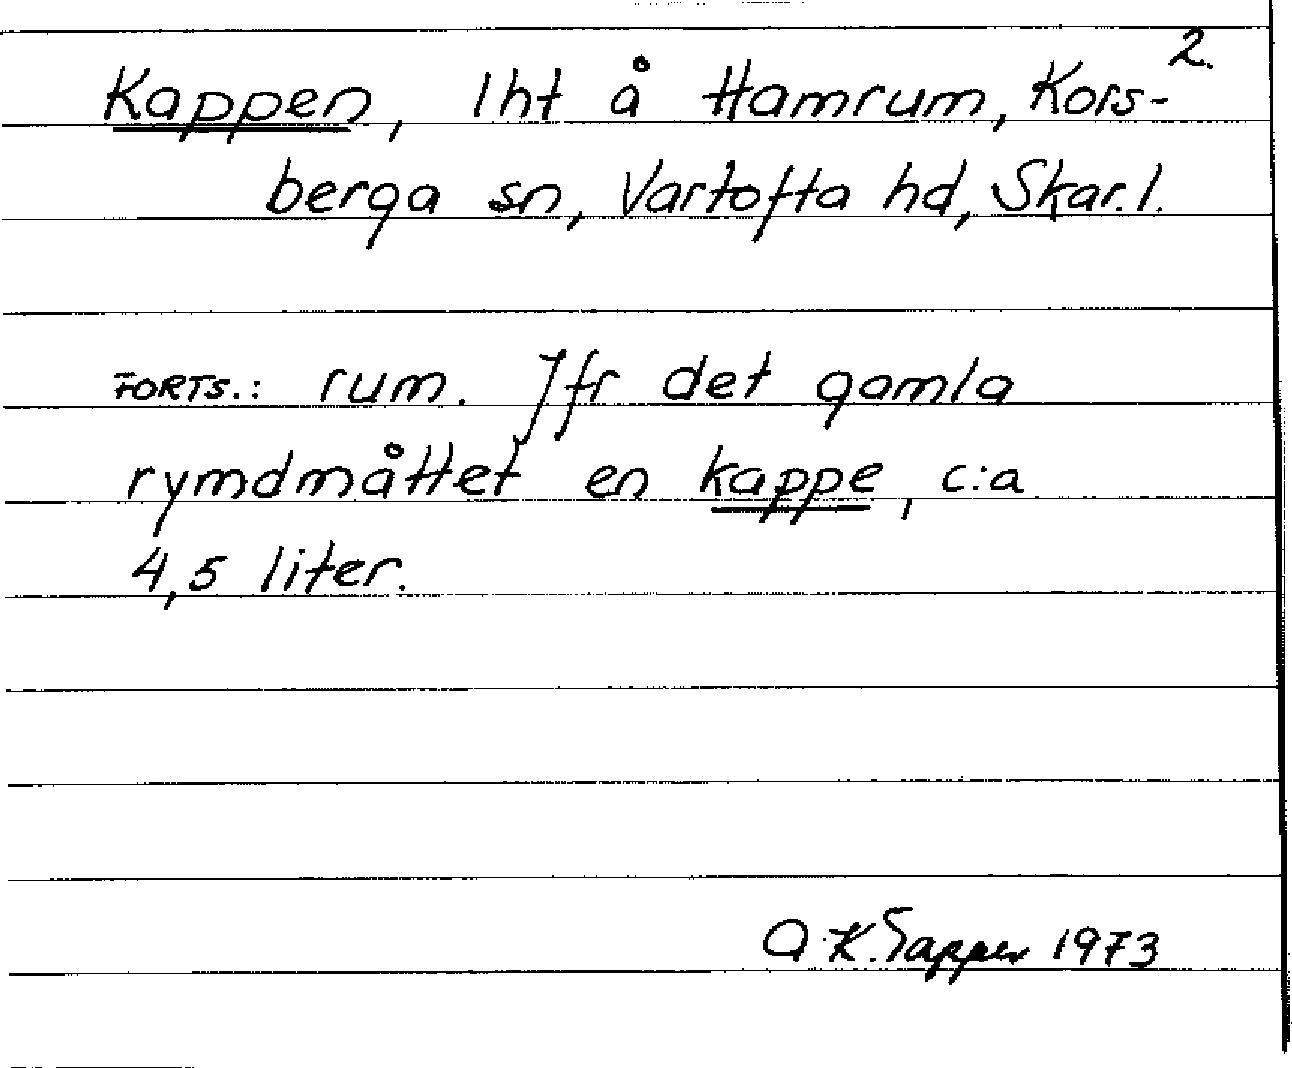 2.
Kappen, lht å Hamrum, Kors-
berga sn, Vartofta hd, Skar. l.
FORTS.: rum. Jfr det gamla
rymdmåttet en kappe, c:a
4,5 liter.
A K. Tapper 1973